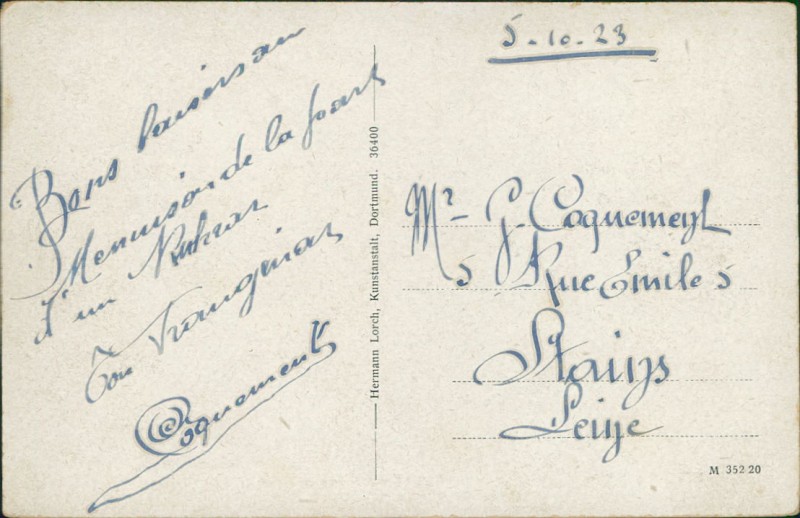 Bons baisers au
Menuisier de la part
d'un
Ton Frangin
Coquement
Hermann Lorch, Kunstanstalt, Dortmund. 36400
5-10-23
Mr J. Coquement
5 Rue Emile 5
Stains
Seine
M 352 20